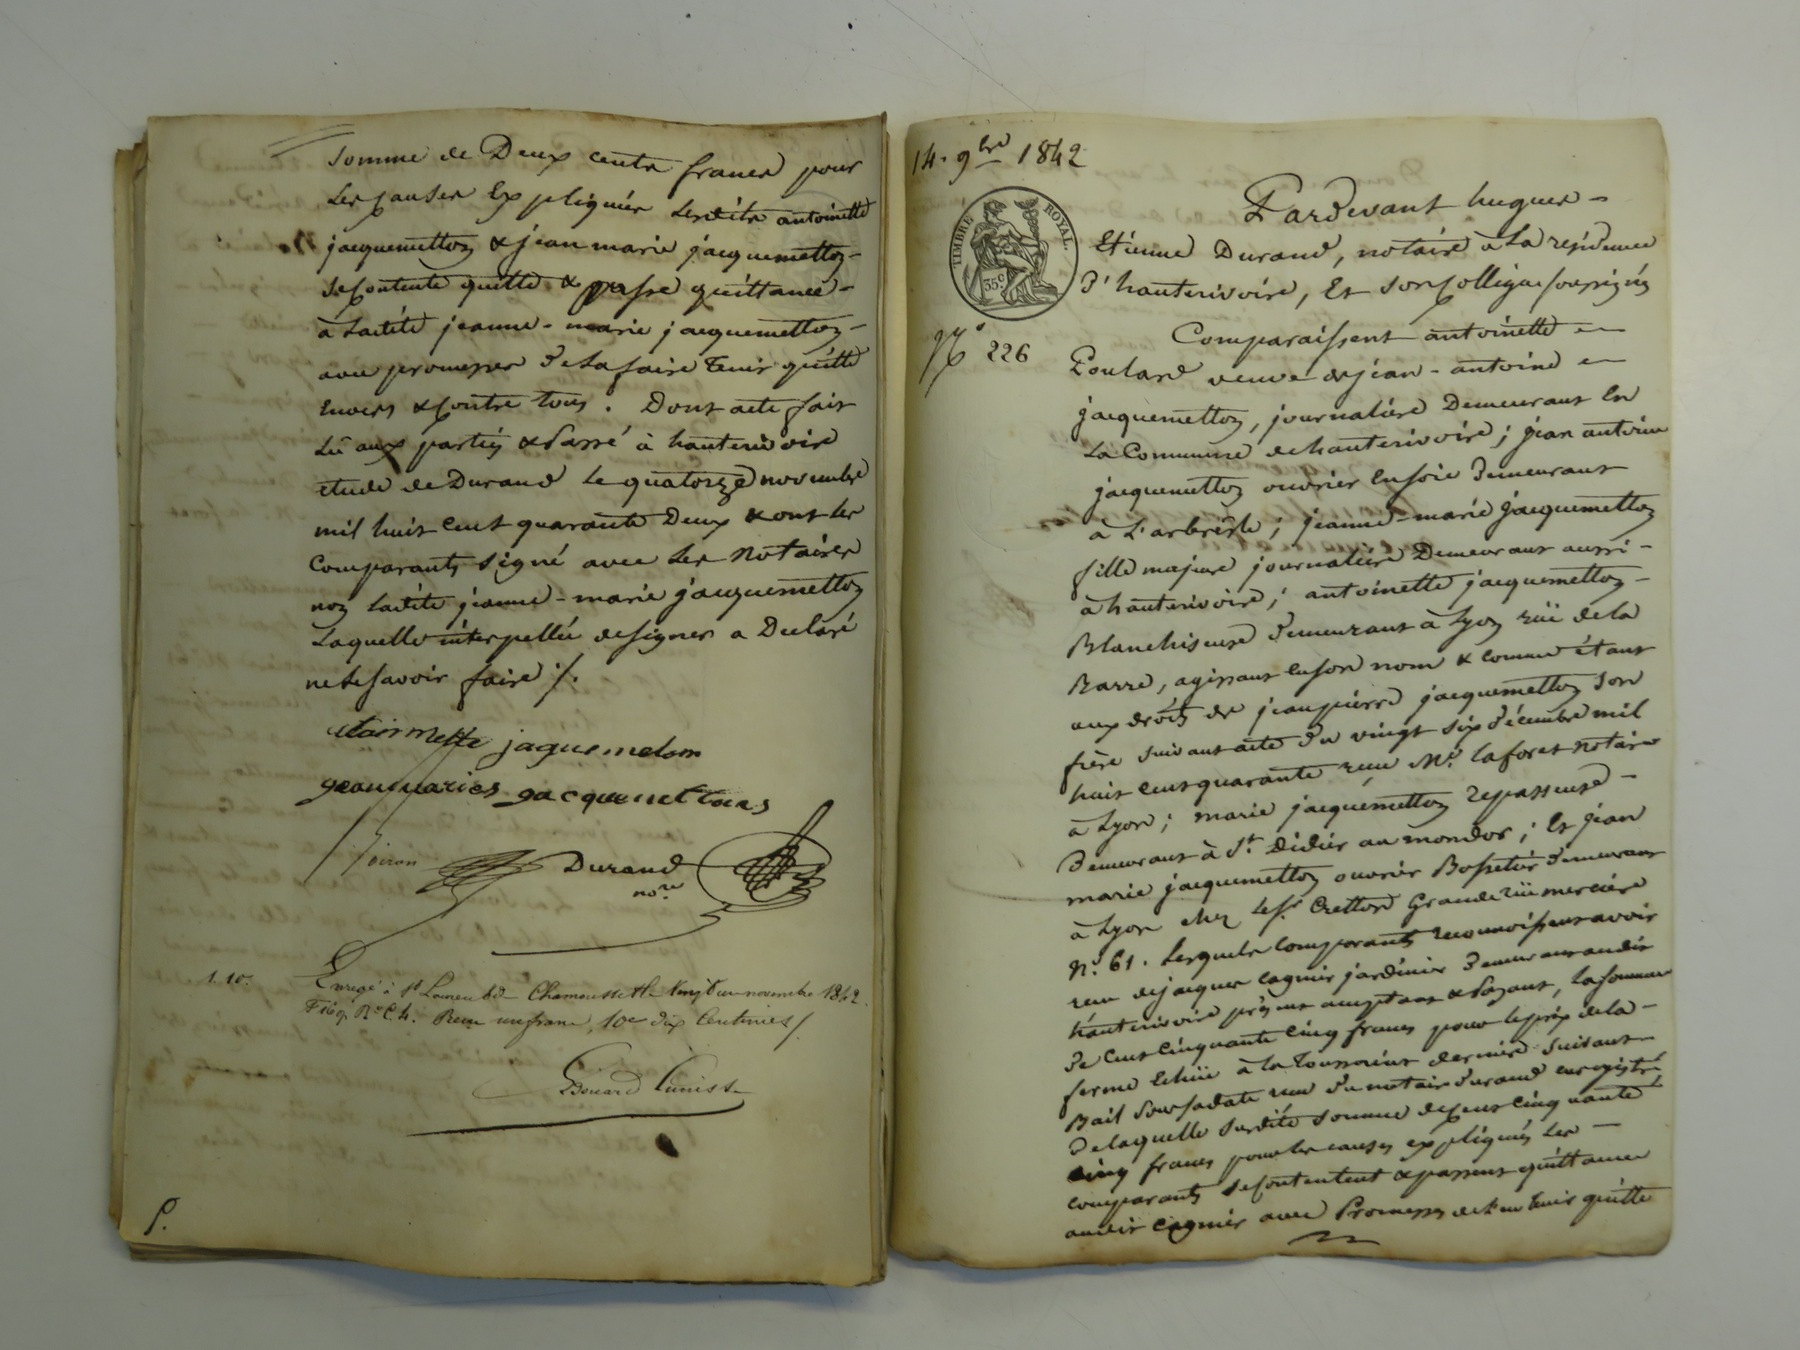 somme de Deux cents francs pour
les causes Expliquées lesdits antoinette
jacquemetton & jean marie jacquemetton -
se Contente quitte & passe quittance -
à Ladite jeanne - marie jacquemetton -
avec promesses De La faire tenir quitte
Envers & Contre tous. Dont acte fait
Lû aux parties & Passé à hauterivoire
etude de Durand le quatorze novembre
mil huit Cent quarante Deux & ont les
Comparants signé avec Les Notaires
non Ladite jeanne - marie jacquemetton
Laquelle interpellée de signer a Declaré
ne Le savoir faire ./.
jaquemeton
jeanmaries jacquemettons
Durand
nore
1.10.
Enregé à St Laurent de Chamousset le Vingt un novembre 1842.
Fo 169 Ro C 4. Reçu un franc, 10e dix Centimes /.
Edouard
P.
14. 9bre 1842
TIMBRE ROYAL.
35c
No 226
Pardevant hugues -
Etienne Durand, notaire à La residence
D'hauterivoire, Et son Collègue soussignés
Comparaissent antoinette
Poulard veuve de jean - antoine
jacquemetton, journalière Demeurant En
La Commune de hauterivoire; jean antoine
jacquemetton ouvrier En soie Demeurant
à L'arbresle; jeanne - marie jacquemetton
fille majeure journalière Demeurant aussi -
à hauterivoire; antoinette jacquemetton -
Blanchiseuse Demeurant à Lyon rüe de la
Barre, agissant En son nom & comme étant
aux droits de jean pierre jacquemetton son
frère suivant acte Du vingt six Décembre mil
huit Cent quarante reçu Me. Laforest notaire
à Lyon; marie jacquemetton repasseuse -
Demeurant à St. Didier au mondor; Et jean
marie jacquemetton ouvrier Demeurant
à Lyon chez Le sr Cretton Grande rüe mercière
No. 61. Lesquels Comparants reconnoissent avoir
reçu de jacques Cagnier jardinier Demeurant audit
hauterivoire présent acceptant & Payant, la somme
de Cent Cinquante Cinq francs pour le prix de la -
ferme Echüe à la Toussaint dernière suivant
Bail sous sa date reçu Du notaire Durand enregistré
De laquelle susdite somme de Cent Cinquante
Cinq francs pour les causes expliquées Les -
comparants se Contentent & passent quittance
audit Cagnier avec Promesses de L'en tenir quitte